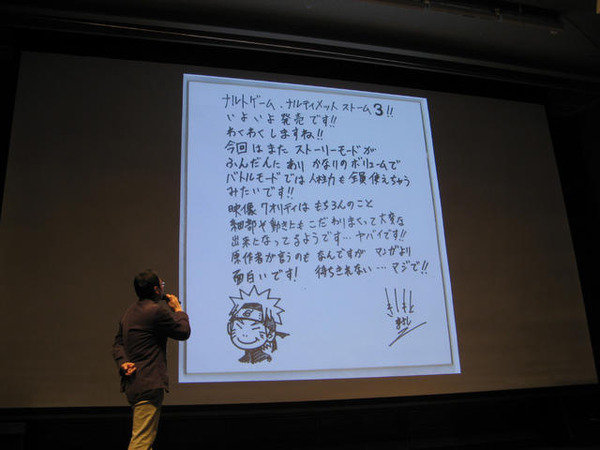 ナルトゲーム、ナルティメット ストーム3!!
いよいよ発売です!!
わくわくしますね!!
今回はまた ストーリーモードが
ふんだんに あり かなりのボリュームで
バトルモードでは 人柱力も 全員使えちゃう
みたいです!!
映像クオリティは もちろんのこと
細部や動きにもこだわりまくって 大変な
出来となってるようです…ヤバイです!!
原作者が言うのも なんですが マンガより
面白いです! 待ちきれない…マジで!!
きしもと
まさし